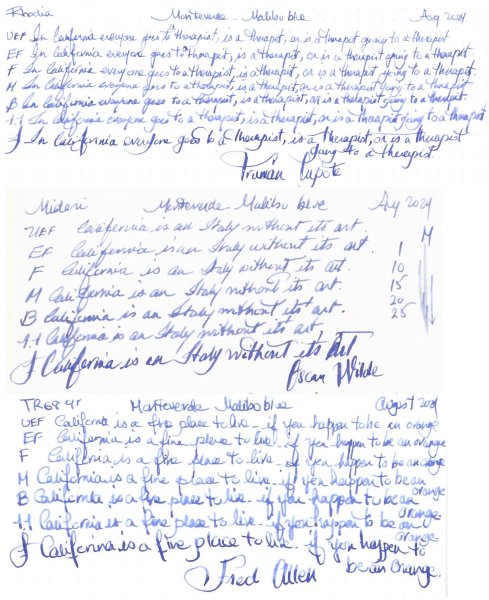 Rhodia Monteverde - Malibu blue Aug 2024
UEF In California everyone goes to a therapist, is a therapist, or is a therapist going to a therapist
EF In California everyone goes to a therapist, is a therapist, or is a therapist going to a therapist.
F In California everyone goes to a therapist, is a therapist, or is a therapist going to a therapist.
M In California everyone goes to a therapist, is a therapist, or is a therapist going to a therapist
B In California everyone goes to a therapist, is a therapist, or is a therapist going to a therapist.
1.1 In California everyone goes to a therapist, is a therapist, or is a therapist going to a therapist
f In California everyone goes to a therapist, is a therapist, or is a therapist
going to a therapist
Truman Capote
Midori Monteverde Malibu blue Aug 2024
UEF California is an Italy without its art. M
EF California is an Italy without its art. 1
F California is an Italy without its art. 10
M California is an Italy without its art. 15
20
B California is an Italy without its art. 25
1.1 California is an Italy without its art,
f California is an Italy without its art
Oscar Wilde
TR68 gr Monteverde Malibu blue August 2024
UEF California is a fine place to live - if you happen to be an orange
EF California is a fine place to live - if you happen to be an orange
F California is a fine place to live - if you happen to be an orange
M California is a fine place to live - if you happen to be an
orange
B California is a fine place to live - if you happen to be an
orange
1.1 California is a fine place to live - if you happen to be an
orange
f California is a fine place to live - if you happen to
be an orange.
Fred Allen